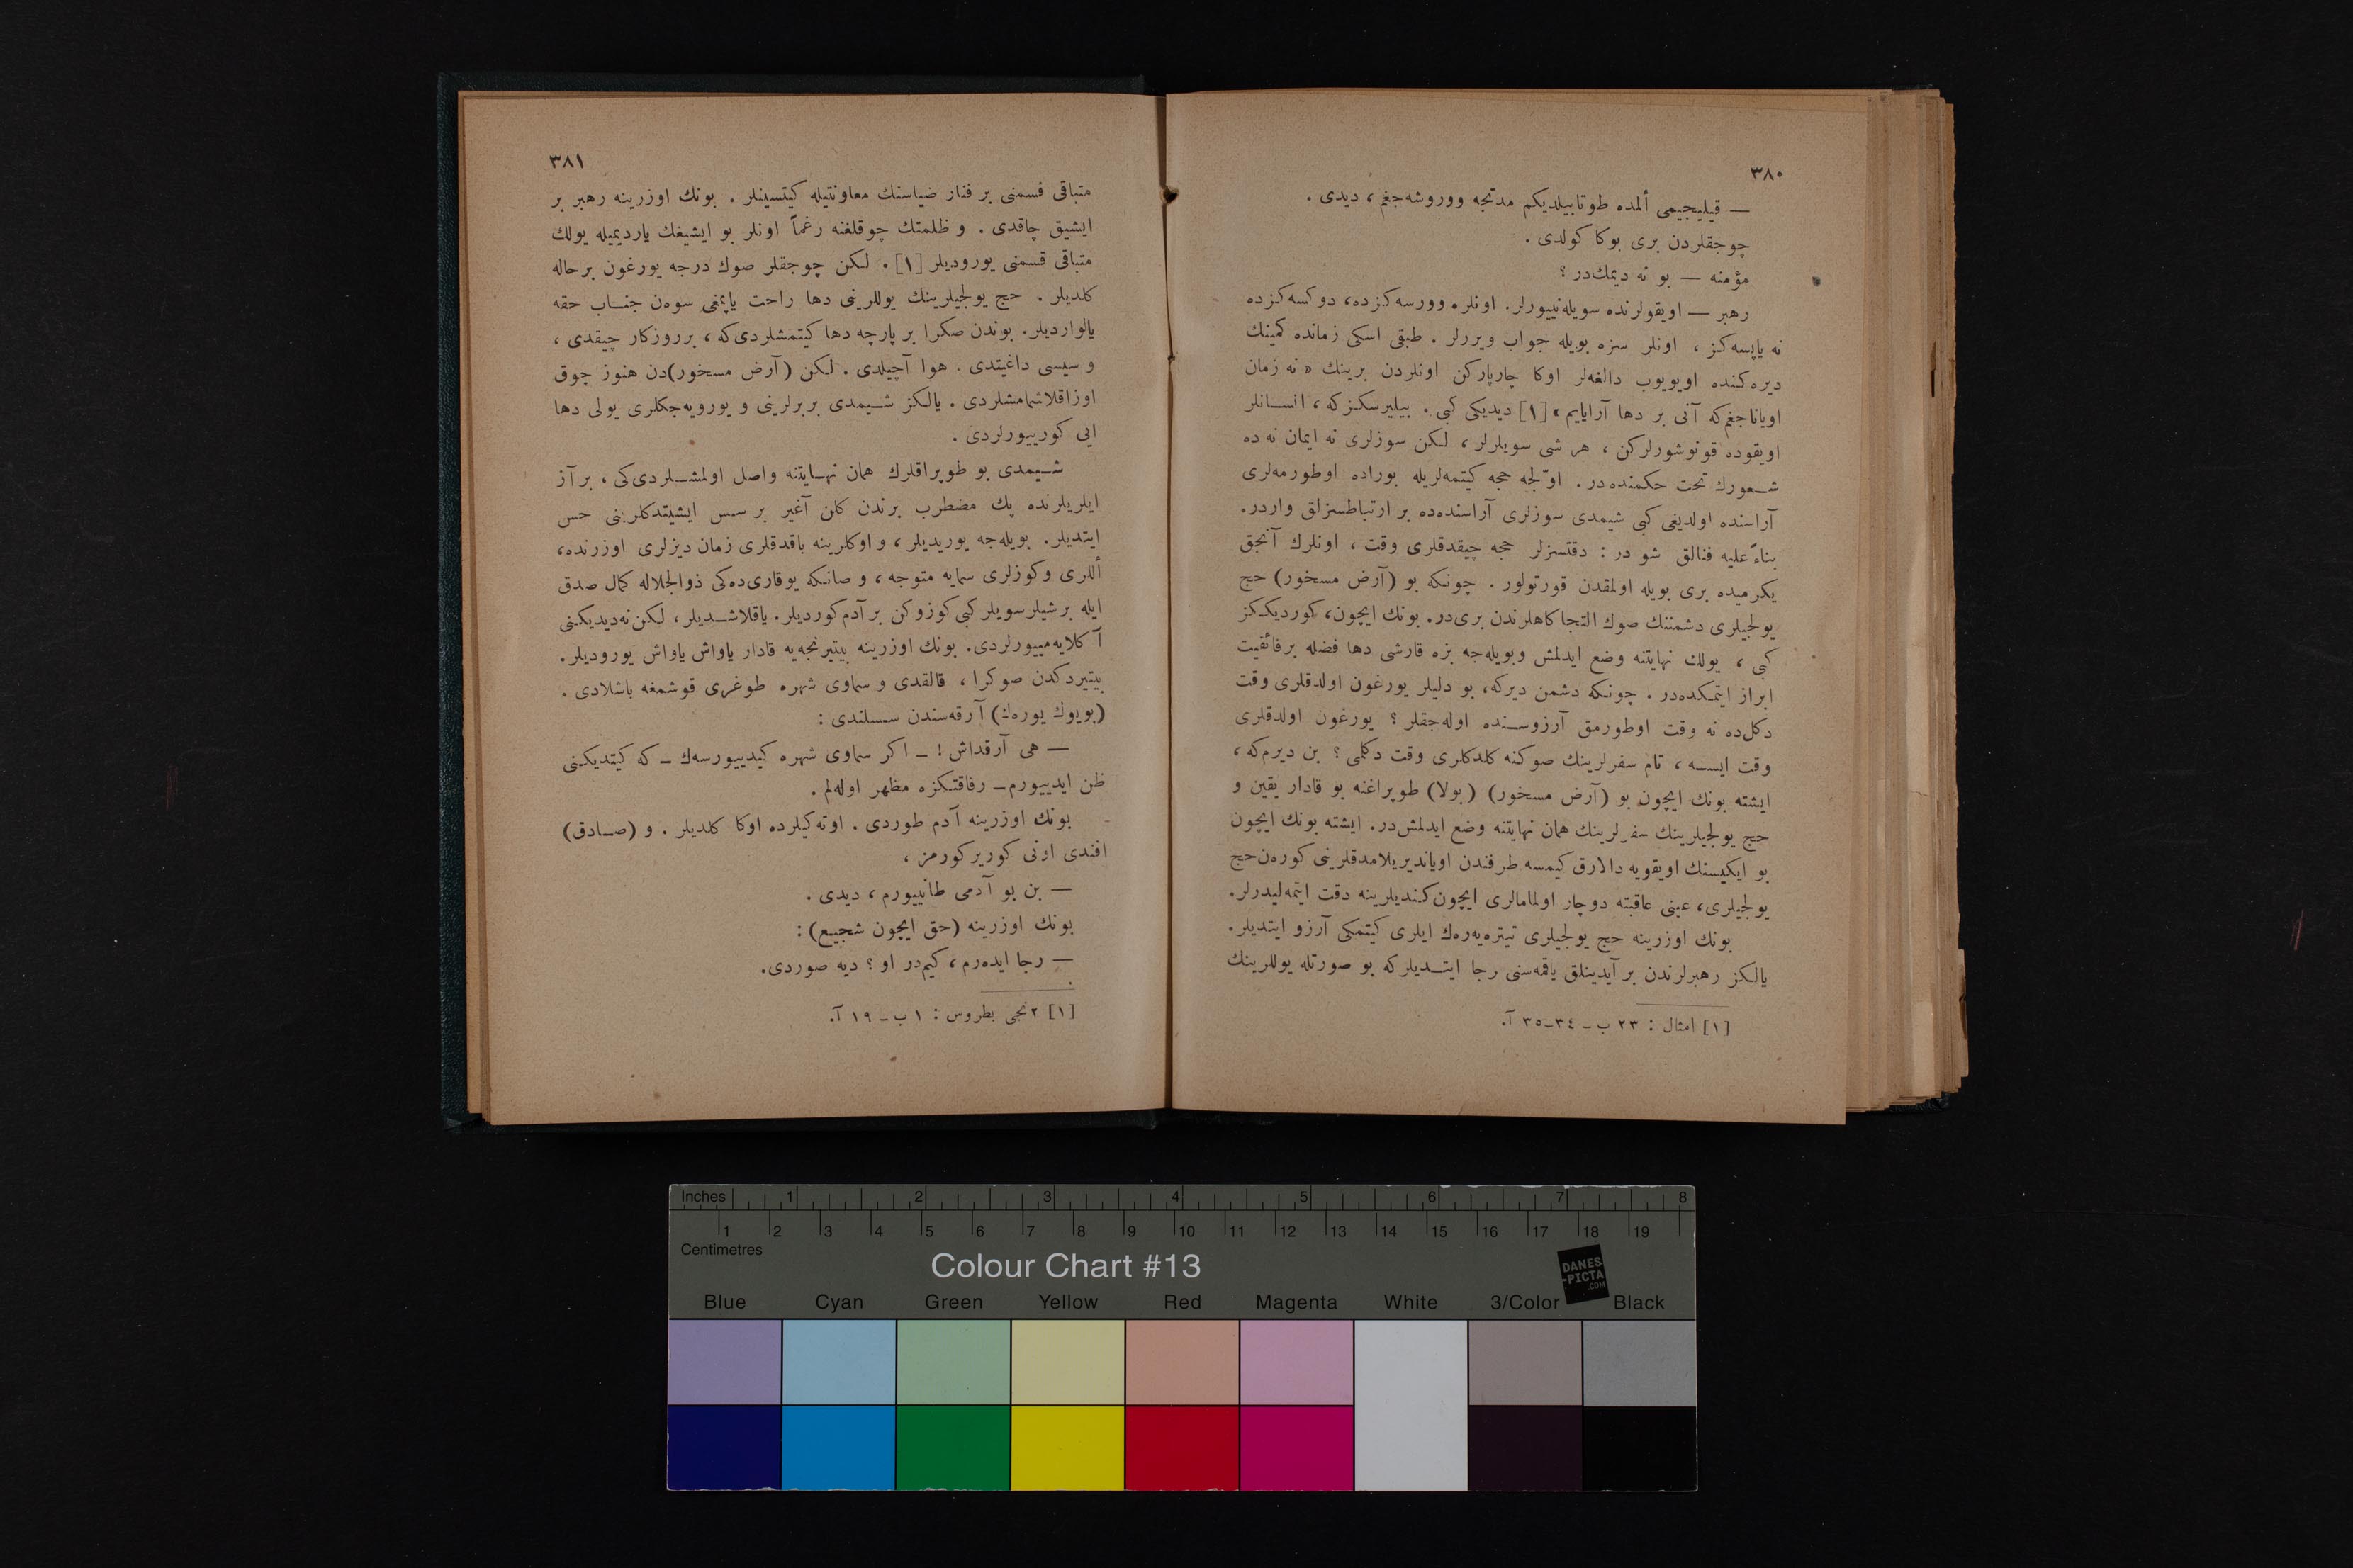 ٣٨٠
— قيليجيمى ألمده طوتابيلديكم مدتجه ووروشه‌جغم ، ديدى .
چوجقلردن برى بوكا كولدى .
مؤمنه — بو نه ديمك‌در ؟
رهبر — اويقولرنده سويله‌نييورلر. اونلره وورسه‌كزده، دوكسه‌كزده
نه ياپسه‌كز ، اونلر سزه بويله جواب ويررلر . طبقى اسكى زمانده كمينك
ديره‌كنده اويويوب دالغه‌لر اوكا چارپاركن اونلردن برينك « نه زمان
اوياناجغم‌كه آنى بر دها آرايايم » [١] ديديكى كبى . بيليرسكزكه ، انسانلر
اويقوده قونوشورلركن ، هر شى سويلرلر ، لكن سوزلرى نه ايمان نه ده
شعورك تحت حكمنده‌در . اوّلجه حجه كيتمه‌لريله بوراده اوطورمه‌لرى
آراسنده اولديغى كبى شيمدى سوزلرى آراسنده‌ده بر ارتباطسزلق واردر.
بناءً عليه فنالق شو در : دقتسزلر حجه چيقدقلرى وقت ، اونلرك آنجق
يكرميده برى بويله اولمقدن قورتولور . چونكه بو (آرض مسخور) حج
يولجيلرى دشمننك صوك التجا كاهلرندن برى‌در. بونك ايچون، كورديككز
كبى ، يولك نهايتنه وضع ايدلمش وبويله‌جه بزه قارشى دها فضله برفائقيت
ابراز ايتمكده‌در . چونكه دشمن ديركه، بو دليلر يورغون اولدقلرى وقت
دكل‌ده نه وقت اوطورمق آرزوسنده اوله‌جقلر ؟ يورغون اولدقلرى
وقت ايسه ، تام سفرلرينك صوكنه كلدكلرى وقت دكلمى ؟ بن ديرم‌كه ،
ايشته بونك ايچون بو (آرض مسخور) (بولا) طوپراغنه بو قادار يقين و
حج يولجيلرينك سفرلرينك همان نهايتنه وضع ايدلمش‌در. ايشته بونك ايچون
بو ايكيسنك اويقويه دالارق كيمسه طرفندن اويانديريلامدقلرينى كوره‌ن حج
يولجيلرى، عينى عاقبته دوچار اولمامالرى ايچون كنديلرينه دقت ايتمه‌ليدرلر.
بونك اوزرينه حج يولجيلرى تيتره‌يه‌رەك ايلرى كيتمكى آرزو ايتديلر.
يالكز رهبرلرندن بر آيدينلق ياقمه‌سنى رجا ايتديلركه بو صورتله يوللرينك
[١] امثال : ٢٣ ب ـ ٣٤ـ٣٥ آ.
٣٨١
متباقى قسمنى بر فنار ضياسنك معاونتيله كيتسينلر . بونك اوزرينه رهبر بر
ايشيق چاقدى . و ظلمتك چوقلغنه رغماً اونلر بو ايشيغك يارديميله يولك
متباقى قسمنى يوروديلر [١]. لكن چوجقلر صوك درجه يورغون برحاله
كلديلر . حج يولجيلرينك يوللرينى دها راحت ياپمغى سوه‌ن جناب حقه
يالوارديلر. بوندن صكرا بر پارچه دها كيتمشلردى‌كه ، برروزكار چيقدى ،
و سيسى داغيتدى . هوا آچيلدى . لكن (آرض مسخور)دن هنوز چوق
اوزاقلاشمامشلردى . يالكز شيمدى بربرلرينى و يورويه‌جكلرى يولى دها
ايى كورييورلردى .
شيمدى بو طوپراقلرك همان نهايتنه واصل اولمشلردى‌كى ، بر آز
ايلريلرنده پك مضطرب برندن كلن آغير بر سس ايشيتدكلرينى حس
ايتديلر. بويله‌جه يوريديلر ، و اوكلرينه باقدقلرى زمان ديزلرى اوزرنده،
أللرى وكوزلرى سمايه متوجه ، و صانكه يوقارى‌ده‌كى ذوالجلاله كمال صدق
ايله برشيلر سويلر كبى كوزوكن بر آدم كورديلر. ياقلاشديلر ، لكن نه‌ديديكنى
آكلايه‌مييورلردى. بونك اوزرينه بيتيرنجه‌يه قادار ياواش ياواش يوروديلر.
بيتيردكدن صوكرا ، قالقدى و سماوى شهره طوغرى قوشمغه باشلادى .
(بويوك يورەك) آرقه‌سندن سسلندى :
— هى آرقداش ! ـ اكر سماوى شهره كيدييورسه‌ك ـ كه كيتديكنى
ظن ايدييورم ـ رفاقتكزه مظهر اوله‌لم .
بونك اوزرينه آدم طوردى . اوته‌كيلرده اوكا كلديلر . و (صادق)
افندى اونى كورير كورمز ،
— بن بو آدمى طانييورم ، ديدى .
بونك اوزرينه (حق ايچون شجيع) :
— رجا ايده‌رم ، كيم‌در او ؟ ديه صوردى.
[١] ٢نجى بطروس : ١ ب ـ ١٩ آ.
Inches 1 2 3 4 5 6 7 8
1 2 3 4 5 6 7 8 9 10 11 12 13 14 15 16 17 18 19
Centimetres
Colour Chart #13
DANES
-PICTA
.COM
Blue Cyan Green Yellow Red Magenta White 3/Color Black